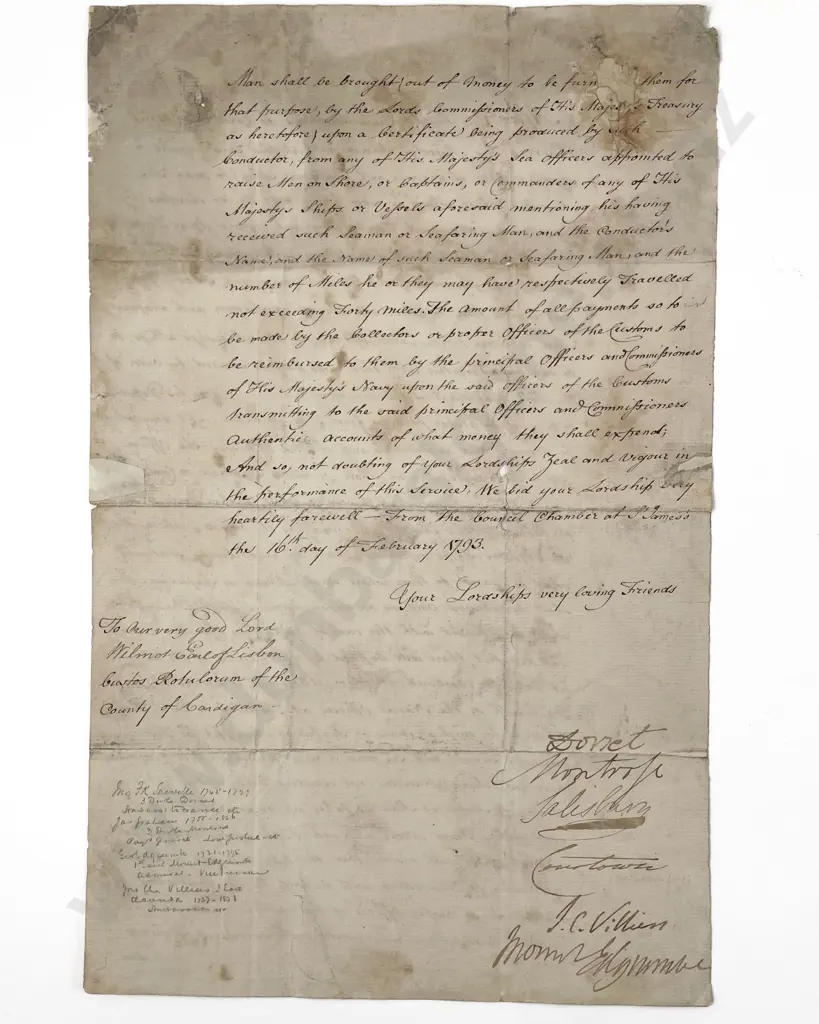 Man shall be brought (out of Money to be furn them for
that purpose, by the Lords Commissioners of His Majesty's Treasury
as heretofore) upon a Certificate being produced by such
Conductor, from any of His Majesty's Sea Officers appointed to
raise Men on Shore, or Captains, or Commanders of any of His
Majesty's Ships or Vessels aforesaid mentioning his having
received such Seaman or Seafaring Man, and the Conductor's
Name, and the Name of such Seaman or Seafaring Man, and the
number of Miles he or they may have respectively Travelled
not exceeding Forty Miles. The Amount of all payments so to
be made by the Collectors or proper Officers of the Customs to
be reimbursed to them by the principal Officers and Commissioners
of His Majesty's Navy upon the said Officers of the Customs
transmitting to the said principal Officers and Commissioners
Authentic accounts of what money they shall expend;
And so, not doubting of your Lordships Zeal and Vigour in
the performance of this Service, We bid your Lordship very
heartily farewell — From the Council Chamber at St. James's
the 16th. day of February 1793.
Your Lordships very loving Friends
To Our very good Lord
Wilmot Earl of Lisbon
Custos Rotulorum of the
County of Cardigan
Dorset
Montrose
Salisbury
Courtown
J. C. Villiers
Mount Edgcumbe
3 Duke Dorset
1st Earl Mount Edgcumbe